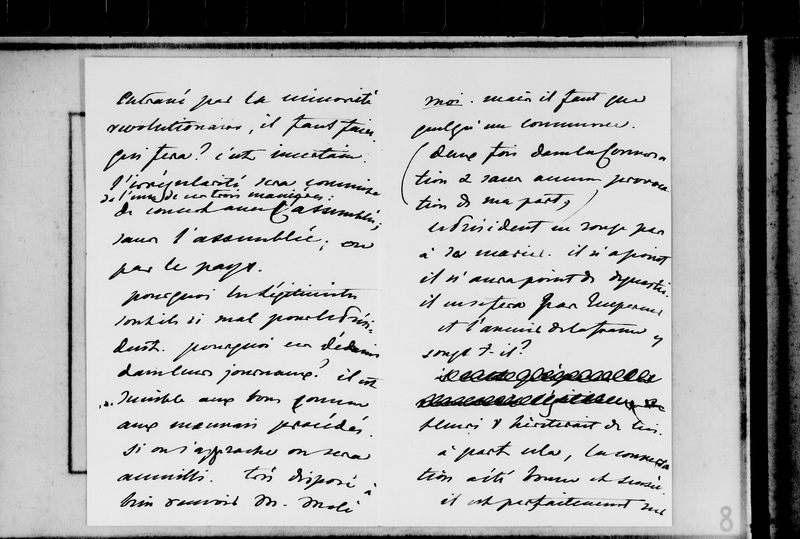 entrainé par la minorité
revolutionaire, il faut faire.
qui fera? c'est incertain.
l'irrégularité sera commise
de l'une de ces trois manières:
de concert avec l'assemblée;
sans l'assemblée; ou
par le pays.
pourquoi les légitimistes
sont ils si mal pour le Prési-
dent. pourquoi ces dédains
dans leurs journaux? il est
sensible aux bons comme
aux mauvais procédés.
si on s'approche on sera
accueilli. très disposé à
bien revoir M. Molé
moi. mais il faut que
quelqu'un commence.
(deux fois dans la conversa
tion & sans aucune provoca
tion de ma part,)
le Président ne songe pas
à se marier. il n'a point
il n'aura point de dynastie.
il ne sera pas Empereur
et l'avenir de la france y
songe t-il?
henri V hériterait de lui.
à part cela, la conversa
tion a été bonne et sensée.
il est parfaitement
8